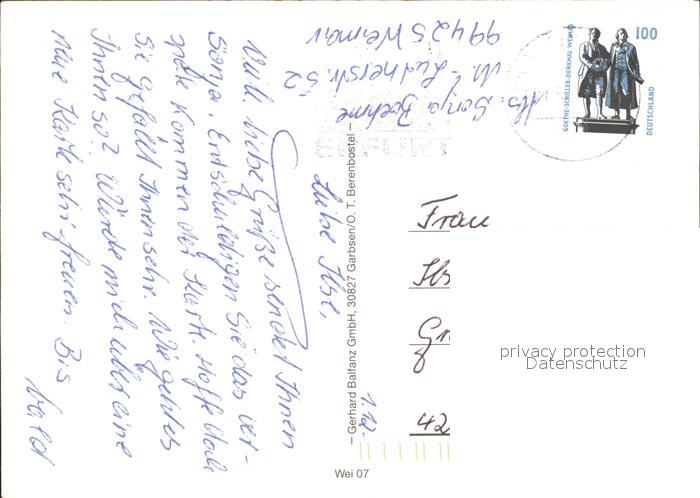 Abs. Sonja Boehme
M. Lutherstr. 52
99425 Weimar
Liebe Ilse,
Viele liebe Grüße sendet Ihnen
Sonja. Entschuldigen Sie das ver-
späte Kommen der Karte. Hoffe daß
Sie gefällt Ihnen sehr. Wie geht es
Ihnen so? Würde mich über eine
neue Karte sehr freuen. Bis
bald
1.12.
Frau
Ils
Gr
42
100
GOETHE-SCHILLER-DENKMAL WEIMAR
DEUTSCHLAND
ERFURT
Gerhard Balfanz GmbH, 30827 Garbsen/O. T. Berenbostel
Wei 07
privacy protection
Datenschutz